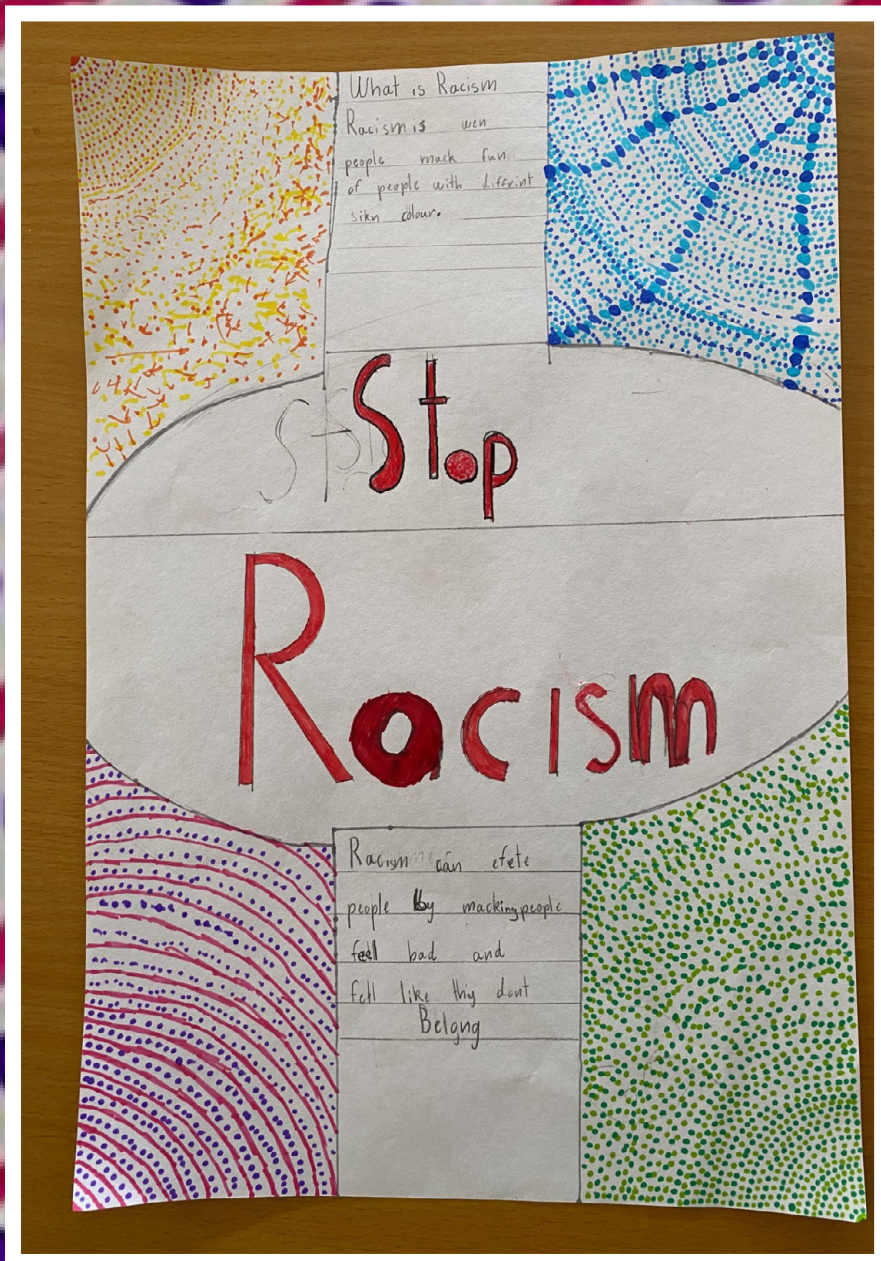 What is Racism
Racism is wen
people mack fun
of people with diffrint
sikn colour.
Stop
Racism
Racism can efete
people by macking people
feell bad and
fell like thiy dont
Belgng